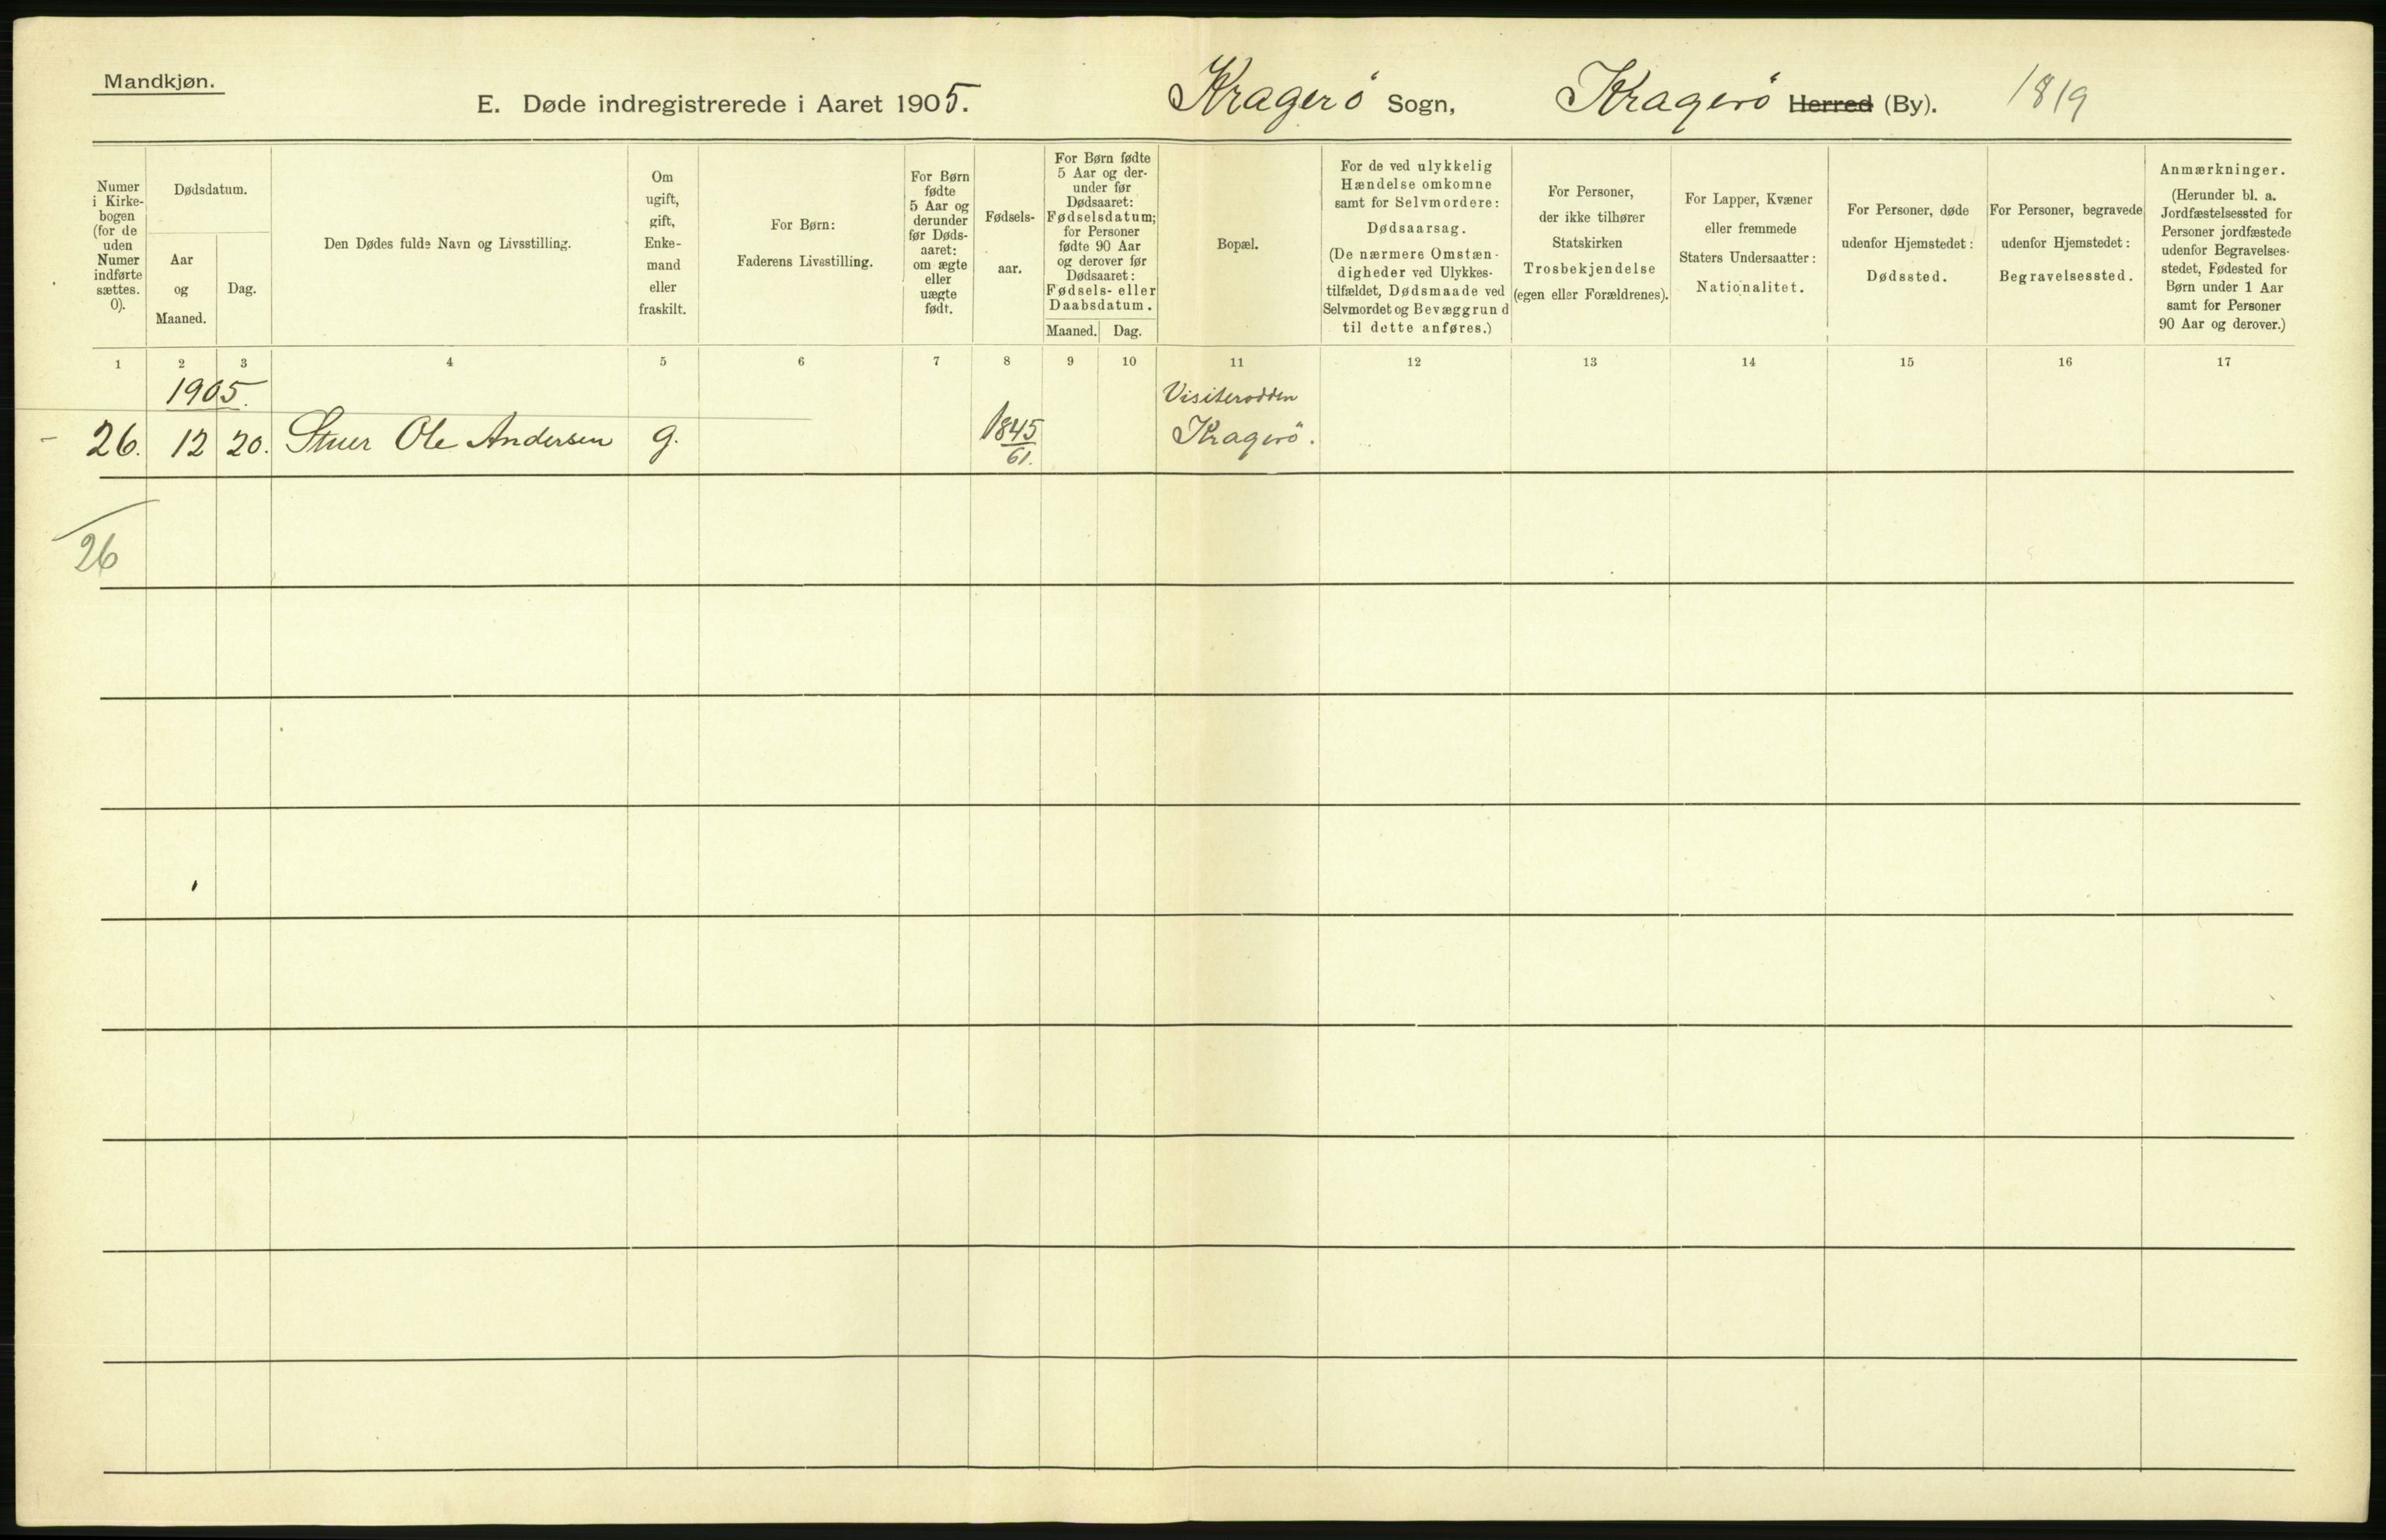 Mandkjøn.
E. Døde indregistrerede i Aaret 1905. Kragerö Sogn, Kragerö Herred (By). 1819
Numer i Kirkebogen (for de uden Numer indførte sættes. 0).
Dødsdatum.
Aar og Maaned.
Dag.
Den Dødes fulde Navn og Livsstilling.
Om ugift, gift, Enkemand eller fraskilt.
For Børn: Faderens Livsstilling.
For Børn fødte 5 Aar og derunder før Dødsaaret: om ægte eller uægte født.
Fødselsaar.
For Børn fødte 5 Aar og derunder før Dødsaaret: Fødselsdatum; for Personer fødte 90 Aar og derover før Dødsaaret: Fødsels- eller Daabsdatum.
Maaned. Dag.
Bopæl.
For de ved ulykkelig Hændelse omkomne samt for Selvmordere: Dødsaarsag. (De nærmere Omstændigheder ved Ulykkestilfældet, Dødsmaade ved Selvmordet og Bevæggrund til dette anføres.)
For Personer, der ikke tilhører Statskirken Trosbekjendelse (egen eller Forældrenes).
For Lapper, Kvæner eller fremmede Staters Undersaatter: Nationalitet.
For Personer, døde udenfor Hjemstedet: Dødssted.
For Personer, begravede udenfor Hjemstedet: Begravelsessted.
Anmærkninger. (Herunder bl. a. Jordfæstelsessted for Personer jordfæstede udenfor Begravelsesstedet, Fødested for Børn under 1 Aar samt for Personer 90 Aar og derover.)
1 2 3 4 5 6 7 8 9 10 11 12 13 14 15 16 17
1905. Visiterodden
- 26. 12 20. Stuer Ole Andersen g. 1845 Kragerö.
61.
26